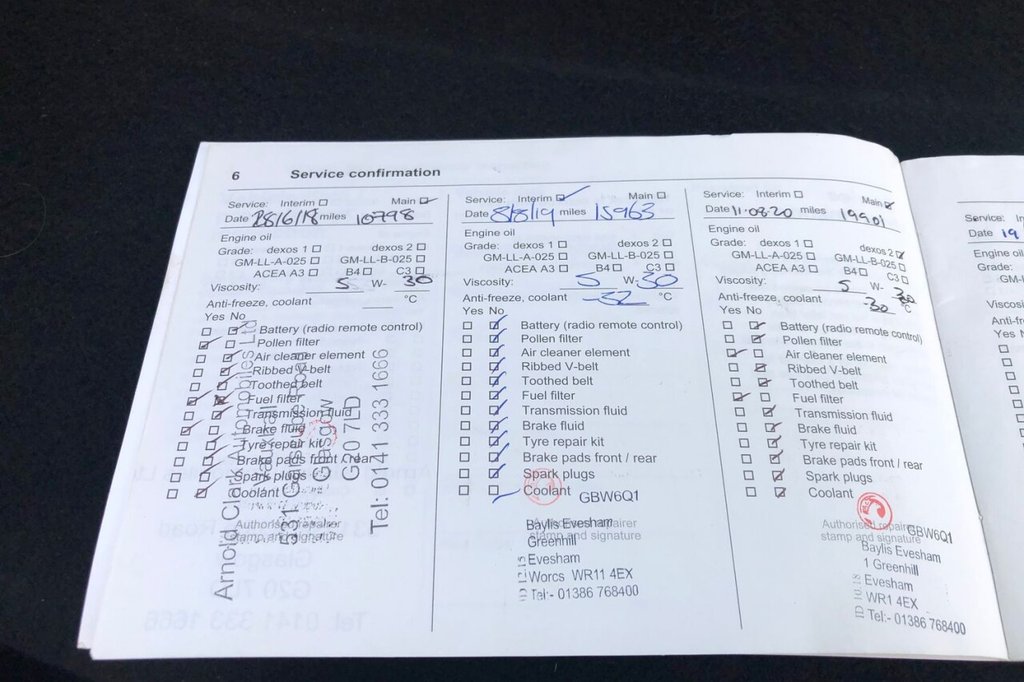 6 Service confirmation
Service: Interim Main
Date 28/6/18 miles 10798
Engine oil
Grade: dexos 1 dexos 2
GM-LL-A-025 GM-LL-B-025
ACEA A3 B4 C3
Viscosity: 5 W- 30
Anti-freeze, coolant °C
Yes No
Battery (radio remote control)
Pollen filter
Air cleaner element
Ribbed V-belt
Toothed belt
Fuel filter
Transmission fluid
Brake fluid
Tyre repair kit
Brake pads front / rear
Spark plugs
Coolant
Authorised repairer
stamp and signature
Arnold Clark Automobiles Ltd
Vauxhall
Glasgow
G20 7LD
Tel: 0141 333 1666
Service: Interim Main
Date 8/8/19 miles 15963
Engine oil
Grade: dexos 1 dexos 2
GM-LL-A-025 GM-LL-B-025
ACEA A3 B4 C3
Viscosity: 5 W- 30
Anti-freeze, coolant -32 °C
Yes No
Battery (radio remote control)
Pollen filter
Air cleaner element
Ribbed V-belt
Toothed belt
Fuel filter
Transmission fluid
Brake fluid
Tyre repair kit
Brake pads front / rear
Spark plugs
Coolant
GBW6Q1
Authorised repairer
stamp and signature
Baylis Evesham
Greenhill
Evesham
Worcs WR11 4EX
Tel:- 01386 768400
Service: Interim Main
Date 11.08.20 miles 19901
Engine oil
Grade: dexos 1 dexos 2
GM-LL-A-025 GM-LL-B-025
ACEA A3 B4 C3
Viscosity: 5 W- 30
Anti-freeze, coolant -30 °C
Yes No
Battery (radio remote control)
Pollen filter
Air cleaner element
Ribbed V-belt
Toothed belt
Fuel filter
Transmission fluid
Brake fluid
Tyre repair kit
Brake pads front / rear
Spark plugs
Coolant
GBW6Q1
Authorised repairer
stamp and signature
Baylis Evesham
1 Greenhill
Evesham
WR1 4EX
Tel:- 01386 768400
Service: In
Date 19
Engine oil
Grade:
GM-
Viscosi
Anti-fr
Yes N